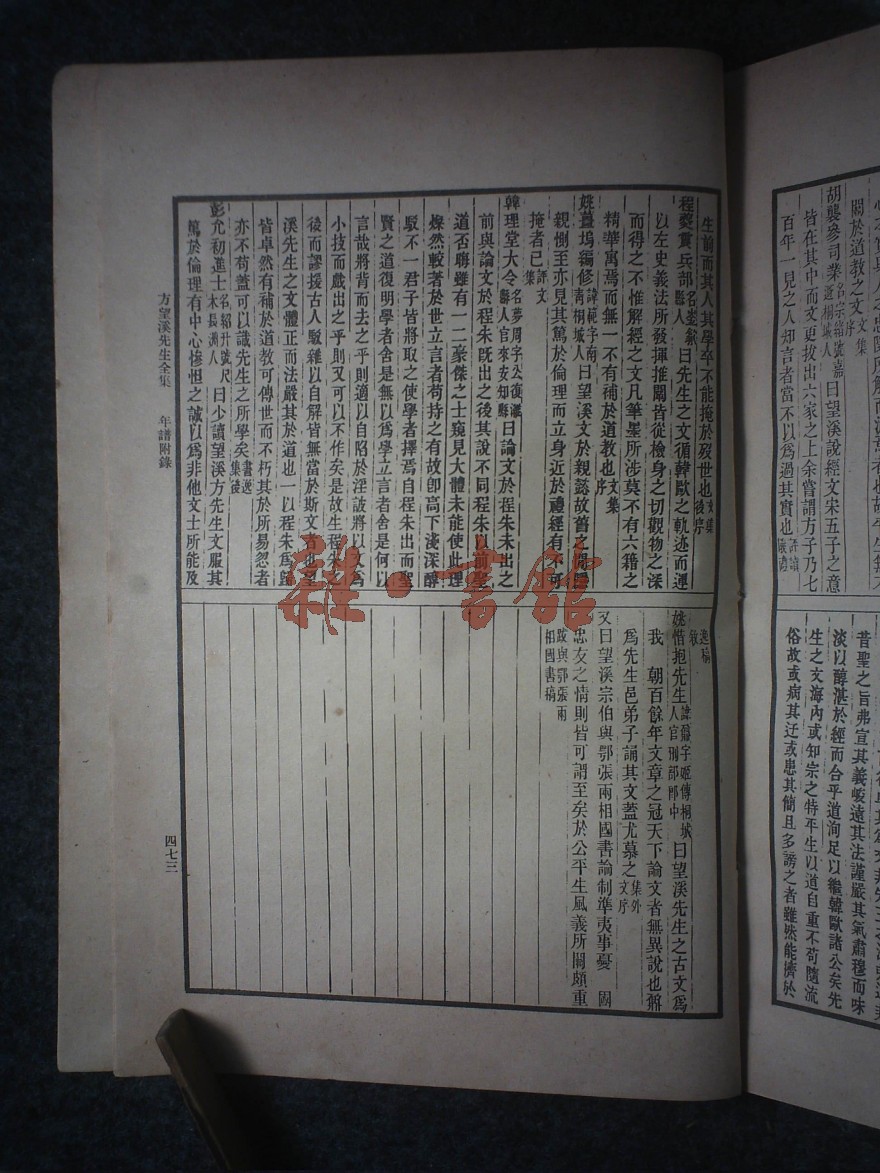 關於道教之文文集序
胡襲參司業名宗緒號嘉遯桐城人曰望溪說經文宋五子之意
皆在其中而文更拔出六家之上余嘗謂方子乃七
百年一見之人却言者當不以爲過其實也
昔聖之旨弗宣其義峻遠其法謹嚴其氣肅穆而味
淡以醇湛於經而合乎道洵足以繼韓歐諸公矣先
生之文海內或知宗之特平生以道自重不苟隨流
俗故或病其迂或患其簡且多謗之者雖然能擠於
生前而其人其學卒不能掩於歿世也文集後序
程夔震兵部名崟歙縣人曰先生之文循韓歐之軌迹而運
以左史義法所發揮推闡皆從檢身之切觀物之深
而得之不惟解經之文凡筆墨所涉莫不有六籍之
精華寓焉而無一不有補於道教也文集序
姚薑塢編修諱範字南青桐城人曰望溪文於親誼故舊之間
親惻至亦見其篤於倫理而立身近於禮經有不可
掩者已評文集
韓理堂大令名夢周字公復濰縣人官來安知縣曰論文於程朱未出之
前與論文於程朱既出之後其說不同程朱以前聖
道否晦雖有一二豪傑之士窺見大體未能使此理
燦然較著於世立言者苟持之有故卽高下淺深醇
駁不一君子皆將取之使學者擇焉自程朱出而聖
賢之道復明學者舍是無以爲學立言者舍是何以
言哉將背而去之乎則適以自陷於淫詖將以又爲
小技而戲出之乎則又可以不作矣是故生程朱之
後而謬援古人駁雜以自解皆無當於斯文者也望
溪先生之文體正而法嚴其於道也一以程朱爲歸
皆卓然有補於道教可傳世而不朽其於所易忽者
亦不苟蓋可以識先生之所學矣書選集後
彭允初進士名紹升號尺木長洲人曰少讀望溪方先生文服其
篤於倫理有中心慘怛之誠以爲非他文士所能及
逸稿敘
姚惜抱先生諱鼐字姬傳桐城人官刑部郎中曰望溪先生之古文爲
我 朝百餘年文章之冠天下論文者無異說也鼐
爲先生邑弟子誦其文蓋尤慕之集外文序
又曰望溪宗伯與鄂張兩相國書論制準夷事憂 國
忠友之情則皆可謂至矣於公平生風義所關頗重
跋與鄂張兩相國書稿
方望溪先生全集 年譜附錄
四七三
雜·書館